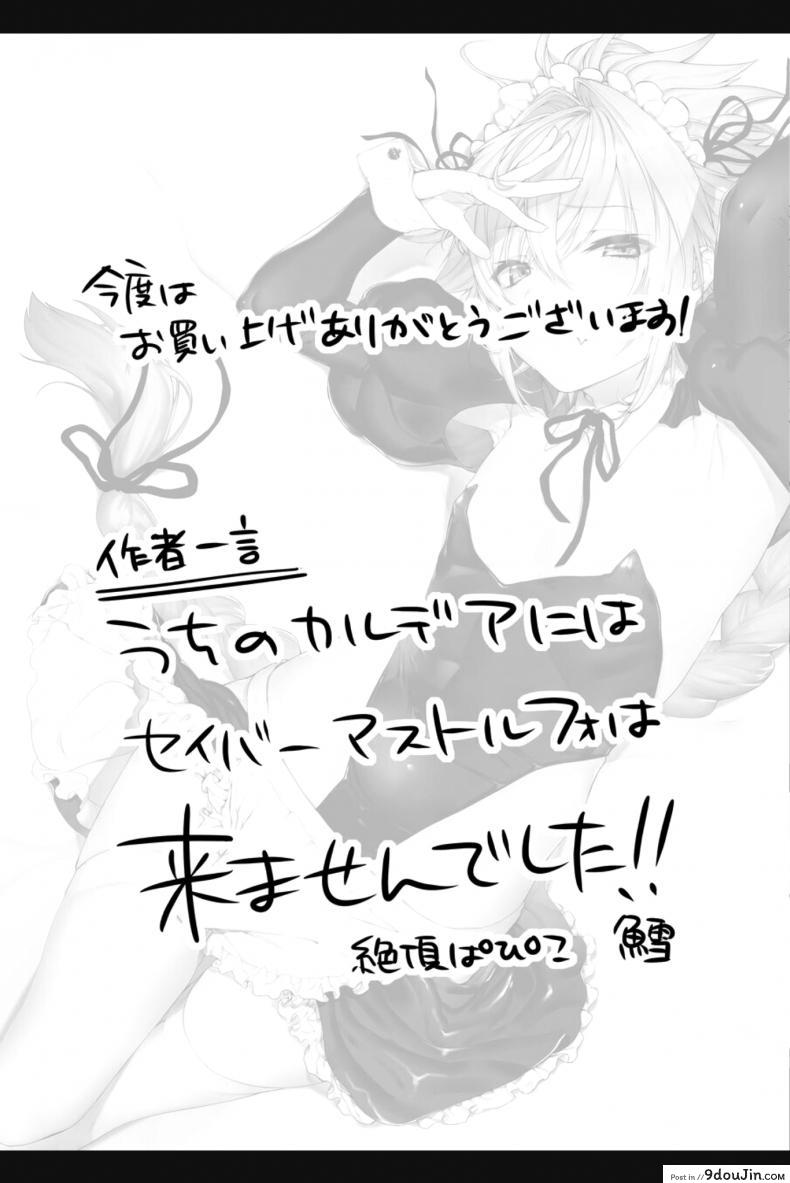 今度は
お買い上げありがとうございます!
作者一言
うちのカルデアには
セイバーアストルフォは
来ませんでした!!
絶頂ぱぴこ 鱈
Post in // 9douJin.com